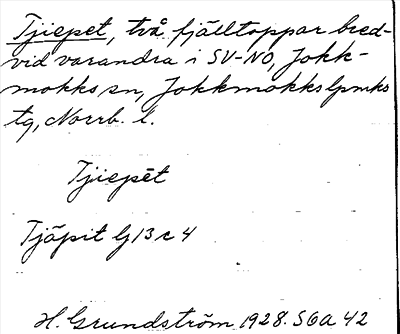 Tjiepet, två fjälltoppar bred-
vid varandra i SV-NO, Jokk-
mokks sn, Jokkmokks lpmks
tg, Norrb. l.
Tjiepēt
Tjäpit Lj 13 c 4
H. Grundström 1928. SOA 42